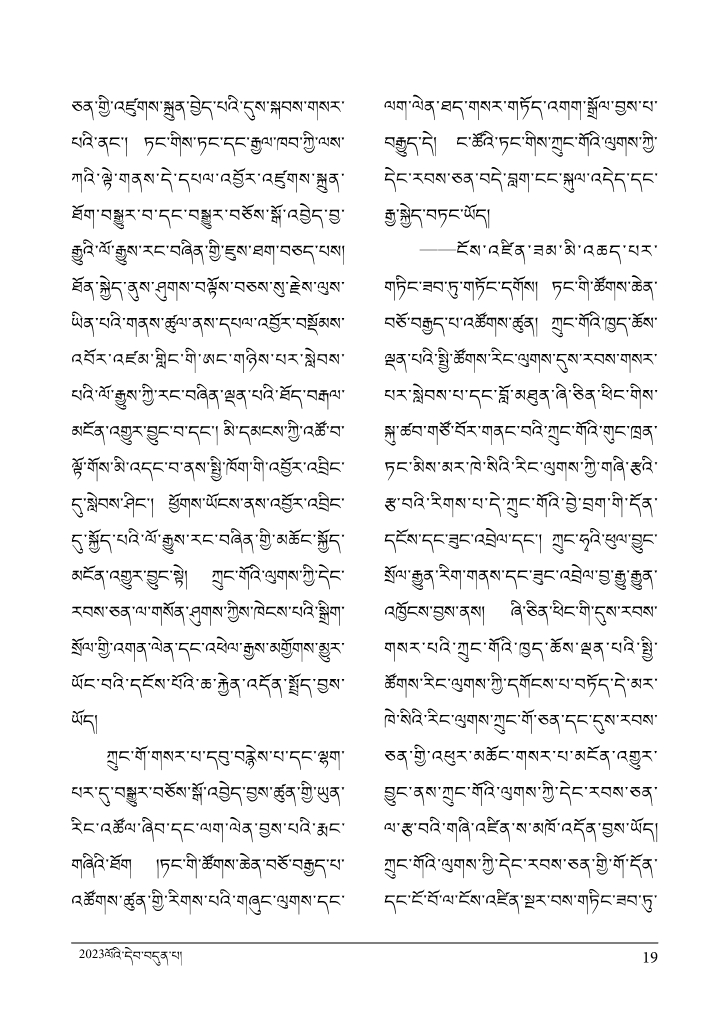 ཅན་གྱི་འཛུགས་སྐྲུན་བྱེད་པའི་དུས་སྐབས་གསར་
པའི་ནང་། ཏང་གིས་ཏང་དང་རྒྱལ་ཁབ་ཀྱི་ལས་
ཀའི་ལྟེ་གནས་དེ་དཔལ་འབྱོར་འཛུགས་སྐྲུན་
ཐོག་བསྒྱུར་བ་དང་བསྒྱུར་བཅོས་སྒོ་འབྱེད་བྱ་
རྒྱུའི་ལོ་རྒྱུས་རང་བཞིན་གྱི་ཇུས་ཐག་བཅད་པས།
ཐོན་སྐྱེད་ནུས་ཤུགས་བལྟོས་བཅས་སུ་རྗེས་ལུས་
ཡིན་པའི་གནས་ཚུལ་ནས་དཔལ་འབྱོར་བསྡོམས་
འབོར་འཛམ་གླིང་གི་ཨང་གཉིས་པར་སླེབས་
པའི་ལོ་རྒྱུས་ཀྱི་རང་བཞིན་ལྡན་པའི་ཐོད་བརྒལ་
མངོན་འགྱུར་བྱུང་བ་དང་། མི་དམངས་ཀྱི་འཚོ་བ་
ལྟོ་གོས་མི་འདང་བ་ནས་སྤྱི་ཁོག་གི་འབྱོར་འབྲིང་
དུ་སླེབས་ཤིང་། ཕྱོགས་ཡོངས་ནས་འབྱོར་འབྲིང་
དུ་སྐྱོད་པའི་ལོ་རྒྱུས་རང་བཞིན་གྱི་མཆོང་སྐྱོད་
མངོན་འགྱུར་བྱུང་སྟེ། ཀྲུང་གོའི་ལུགས་ཀྱི་དེང་
རབས་ཅན་ལ་གསོན་ཤུགས་ཀྱིས་ཁེངས་པའི་སྒྲིག་
སྲོལ་གྱི་འགན་ལེན་དང་འཕེལ་རྒྱས་མགྱོགས་མྱུར་
ཡོང་བའི་དངོས་པོའི་ཆ་རྐྱེན་འདོན་སྤྲོད་བྱས་
ཡོད།
ཀྲུང་གོ་གསར་པ་དབུ་བརྙེས་པ་དང་ལྷག་
པར་དུ་བསྒྱུར་བཅོས་སྒོ་འབྱེད་བྱས་ཚུན་གྱི་ཡུན་
རིང་འཚོལ་ཞིབ་དང་ལག་ལེན་བྱས་པའི་རྨང་
གཞིའི་ཐོག །ཏང་གི་ཚོགས་ཆེན་བཅོ་བརྒྱད་པ་
འཚོགས་ཚུན་གྱི་རིགས་པའི་གཞུང་ལུགས་དང་
ལག་ལེན་ཐད་གསར་གཏོད་འགག་སྒྲོལ་བྱས་པ་
བརྒྱུད་དེ། ང་ཚོའི་ཏང་གིས་ཀྲུང་གོའི་ལུགས་ཀྱི་
དེང་རབས་ཅན་བདེ་བླག་ངང་སྐུལ་འདེད་དང་
རྒྱ་སྐྱེད་བཏང་ཡོད།
——ངོས་འཛིན་ཟམ་མི་འཆད་པར་
གཏིང་ཟབ་ཏུ་གཏོང་དགོས། ཏང་གི་ཚོགས་ཆེན་
བཅོ་བརྒྱད་པ་འཚོགས་ཚུན། ཀྲུང་གོའི་ཁྱད་ཆོས་
ལྡན་པའི་སྤྱི་ཚོགས་རིང་ལུགས་དུས་རབས་གསར་
པར་སླེབས་པ་དང་བློ་མཐུན་ཞི་ཅིན་ཕིང་གིས་
སྐུ་ཚབ་གཙོ་བོར་གནང་བའི་ཀྲུང་གོའི་གུང་ཁྲན་
ཏང་མིས་མར་ཁེ་སིའི་རིང་ལུགས་ཀྱི་གཞི་རྩའི་
རྩ་བའི་རིགས་པ་དེ་ཀྲུང་གོའི་བྱེ་བྲག་གི་དོན་
དངོས་དང་ཟུང་འབྲེལ་དང་། ཀྲུང་ཧྭའི་ཕུལ་བྱུང་
སྲོལ་རྒྱུན་རིག་གནས་དང་ཟུང་འབྲེལ་བྱ་རྒྱུ་རྒྱུན་
འཁྱོངས་བྱས་ནས། ཞི་ཅིན་ཕིང་གི་དུས་རབས་
གསར་པའི་ཀྲུང་གོའི་ཁྱད་ཆོས་ལྡན་པའི་སྤྱི་
ཚོགས་རིང་ལུགས་ཀྱི་དགོངས་པ་བཏོད་དེ་མར་
ཁེ་སིའི་རིང་ལུགས་ཀྲུང་གོ་ཅན་དང་དུས་རབས་
ཅན་གྱི་འཕུར་མཆོང་གསར་པ་མངོན་འགྱུར་
བྱུང་ནས་ཀྲུང་གོའི་ལུགས་ཀྱི་དེང་རབས་ཅན་
ལ་རྩ་བའི་གཞི་འཛིན་ས་མཁོ་འདོན་བྱས་ཡོད།
ཀྲུང་གོའི་ལུགས་ཀྱི་དེང་རབས་ཅན་གྱི་གོ་དོན་
དང་ངོ་བོ་ལ་ངོས་འཛིན་སྔར་བས་གཏིང་ཟབ་ཏུ་
2023ལོའི་དེབ་བདུན་པ།
19